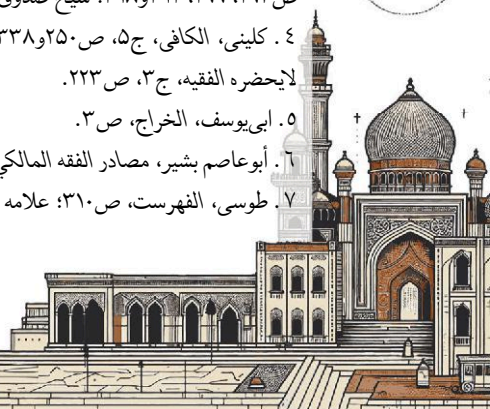 ٤ . کلینی، الکافی، ج٥، ص٢٥٠و٣٣٨
لایحضره الفقیه، ج٣، ص٢٢٣.
٥ . ابی‌یوسف، الخراج، ص٣.
٦ . أبوعاصم بشیر، مصادر الفقه المالکی
٧ . طوسی، الفهرست، ص٣١٠؛ علامه